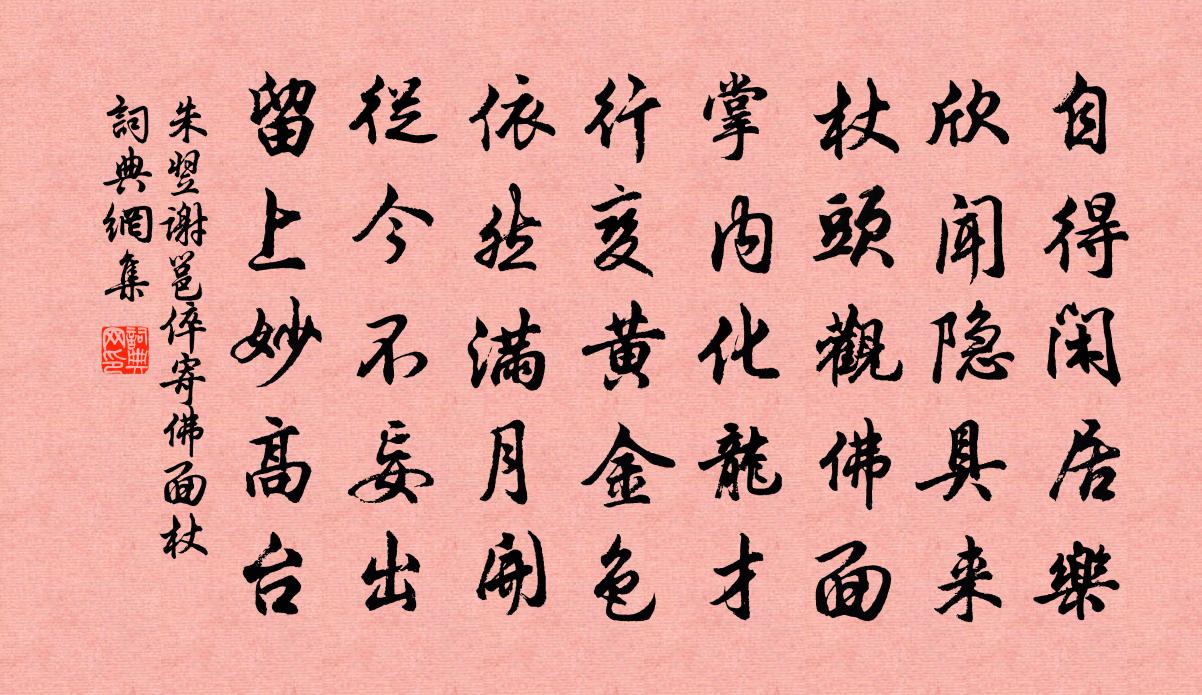 自得閑居樂
欣聞隐具来
杖頭觀佛面
掌内化龍才
行变黄金色
依然满月開
從今不妄出
留上妙高台
朱翌謝邕倅寄佛面杖
詞典網集
詞典网印